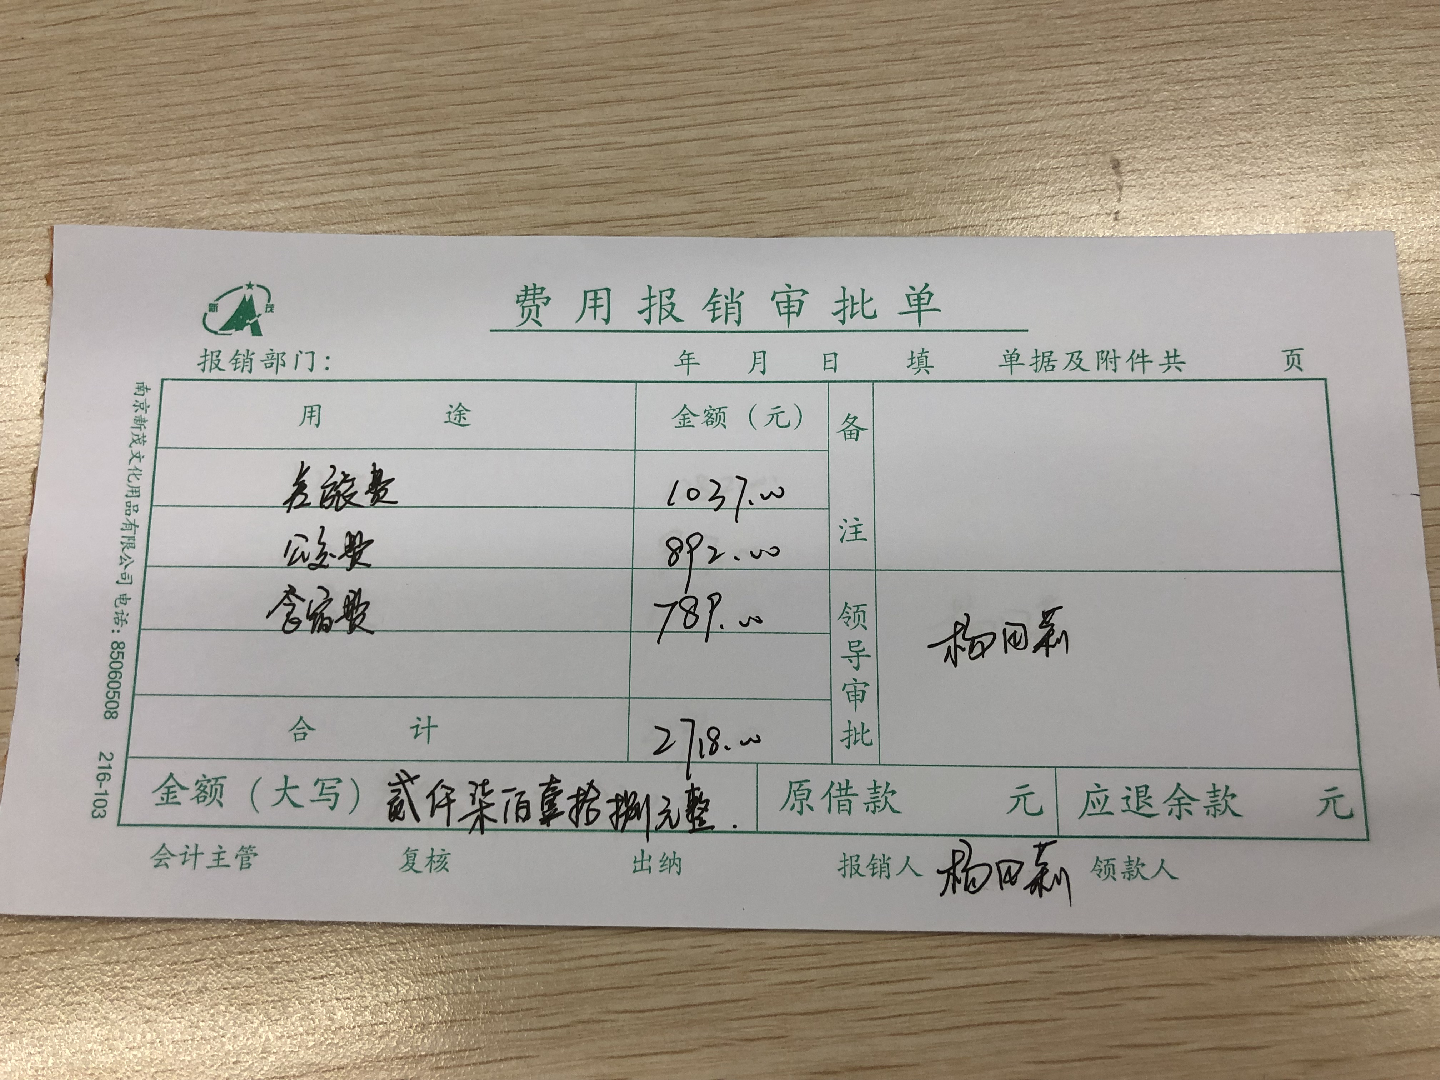 新 茂
费用报销审批单
报销部门: 年 月 日 填 单据及附件共 页
用 途 金额（元） 备注
差旅费 1037.00
公交费 892.00
食宿费 789.00
领导审批 杨田莉
合 计 2718.00
金额（大写） 贰仟柒佰壹拾捌元整. 原借款 元 应退余款 元
会计主管 复核 出纳 报销人 杨田莉 领款人
南京新茂文化用品有限公司 电话: 85060508 216-103